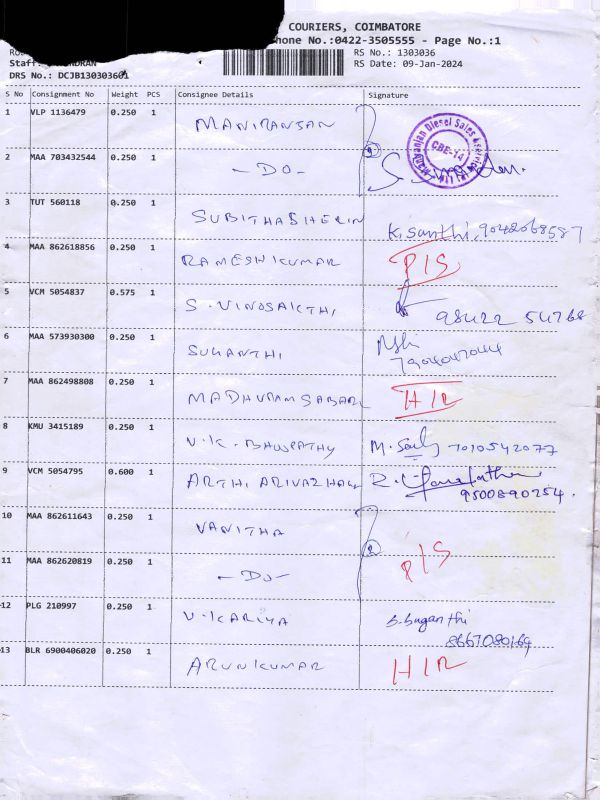 COURIERS, COIMBATORE
Phone No.:0422-3505555 - Page No.:1
RS No.: 1303036
Staff:
RS Date: 09-Jan-2024
DRS No.: DCJB1303036
S No Consignment No Weight PCS Consignee Details Signature
1 VLP 1136479 0.250 1 MANIRANJAN
2 MAA 703432544 0.250 1 -DO- 2
Diesel Sales & Service
CBE-14
3 TUT 560118 0.250 1 SUBITHASHERIN K. Santhi, 9042068587
4 MAA 862618856 0.250 1 RAMESHKUMAR P/S
5 VCM 5054837 0.575 1 S. VINOSAKTHI 98422 54768
6 MAA 573930300 0.250 1 SUKANTHI
7 MAA 862498808 0.250 1 MADHURAMSABARI H/R
8 KMU 3415189 0.250 1 V.K. BHUPATHY 7010542077
9 VCM 5054795 0.600 1 ARTHI ARIVAZHAG
9500890254.
10 MAA 862611643 0.250 1 VANITHA
11 MAA 862620819 0.250 1 -DO- 2 P/S
12 PLG 210997 0.250 1 V. KARIYA S. Suganthi
8667080169
13 BLR 6900406020 0.250 1 ARUNKUMAR H/R